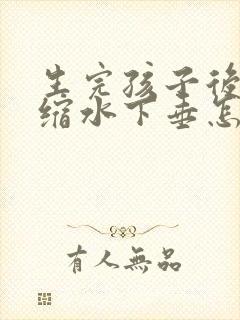 生完孩子後
缩水下垂怎
有人無品